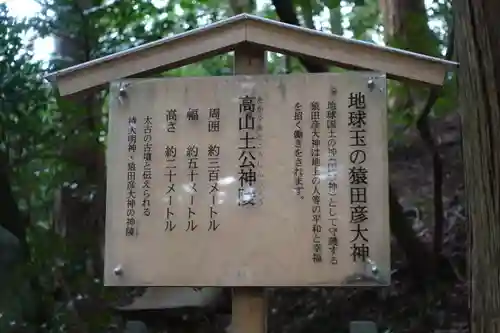 地球玉の猿田彦大神
地球国土の神(国の神)として守護し
猿田彦大神は地上の人等の平和と幸福
を招く働きをされます。
高山土公神陵
周囲 約三百メートル
幅 約五十メートル
高さ 約二十メートル
太古の古墳と伝えられる
椿大明神・猿田彦大神の神陵